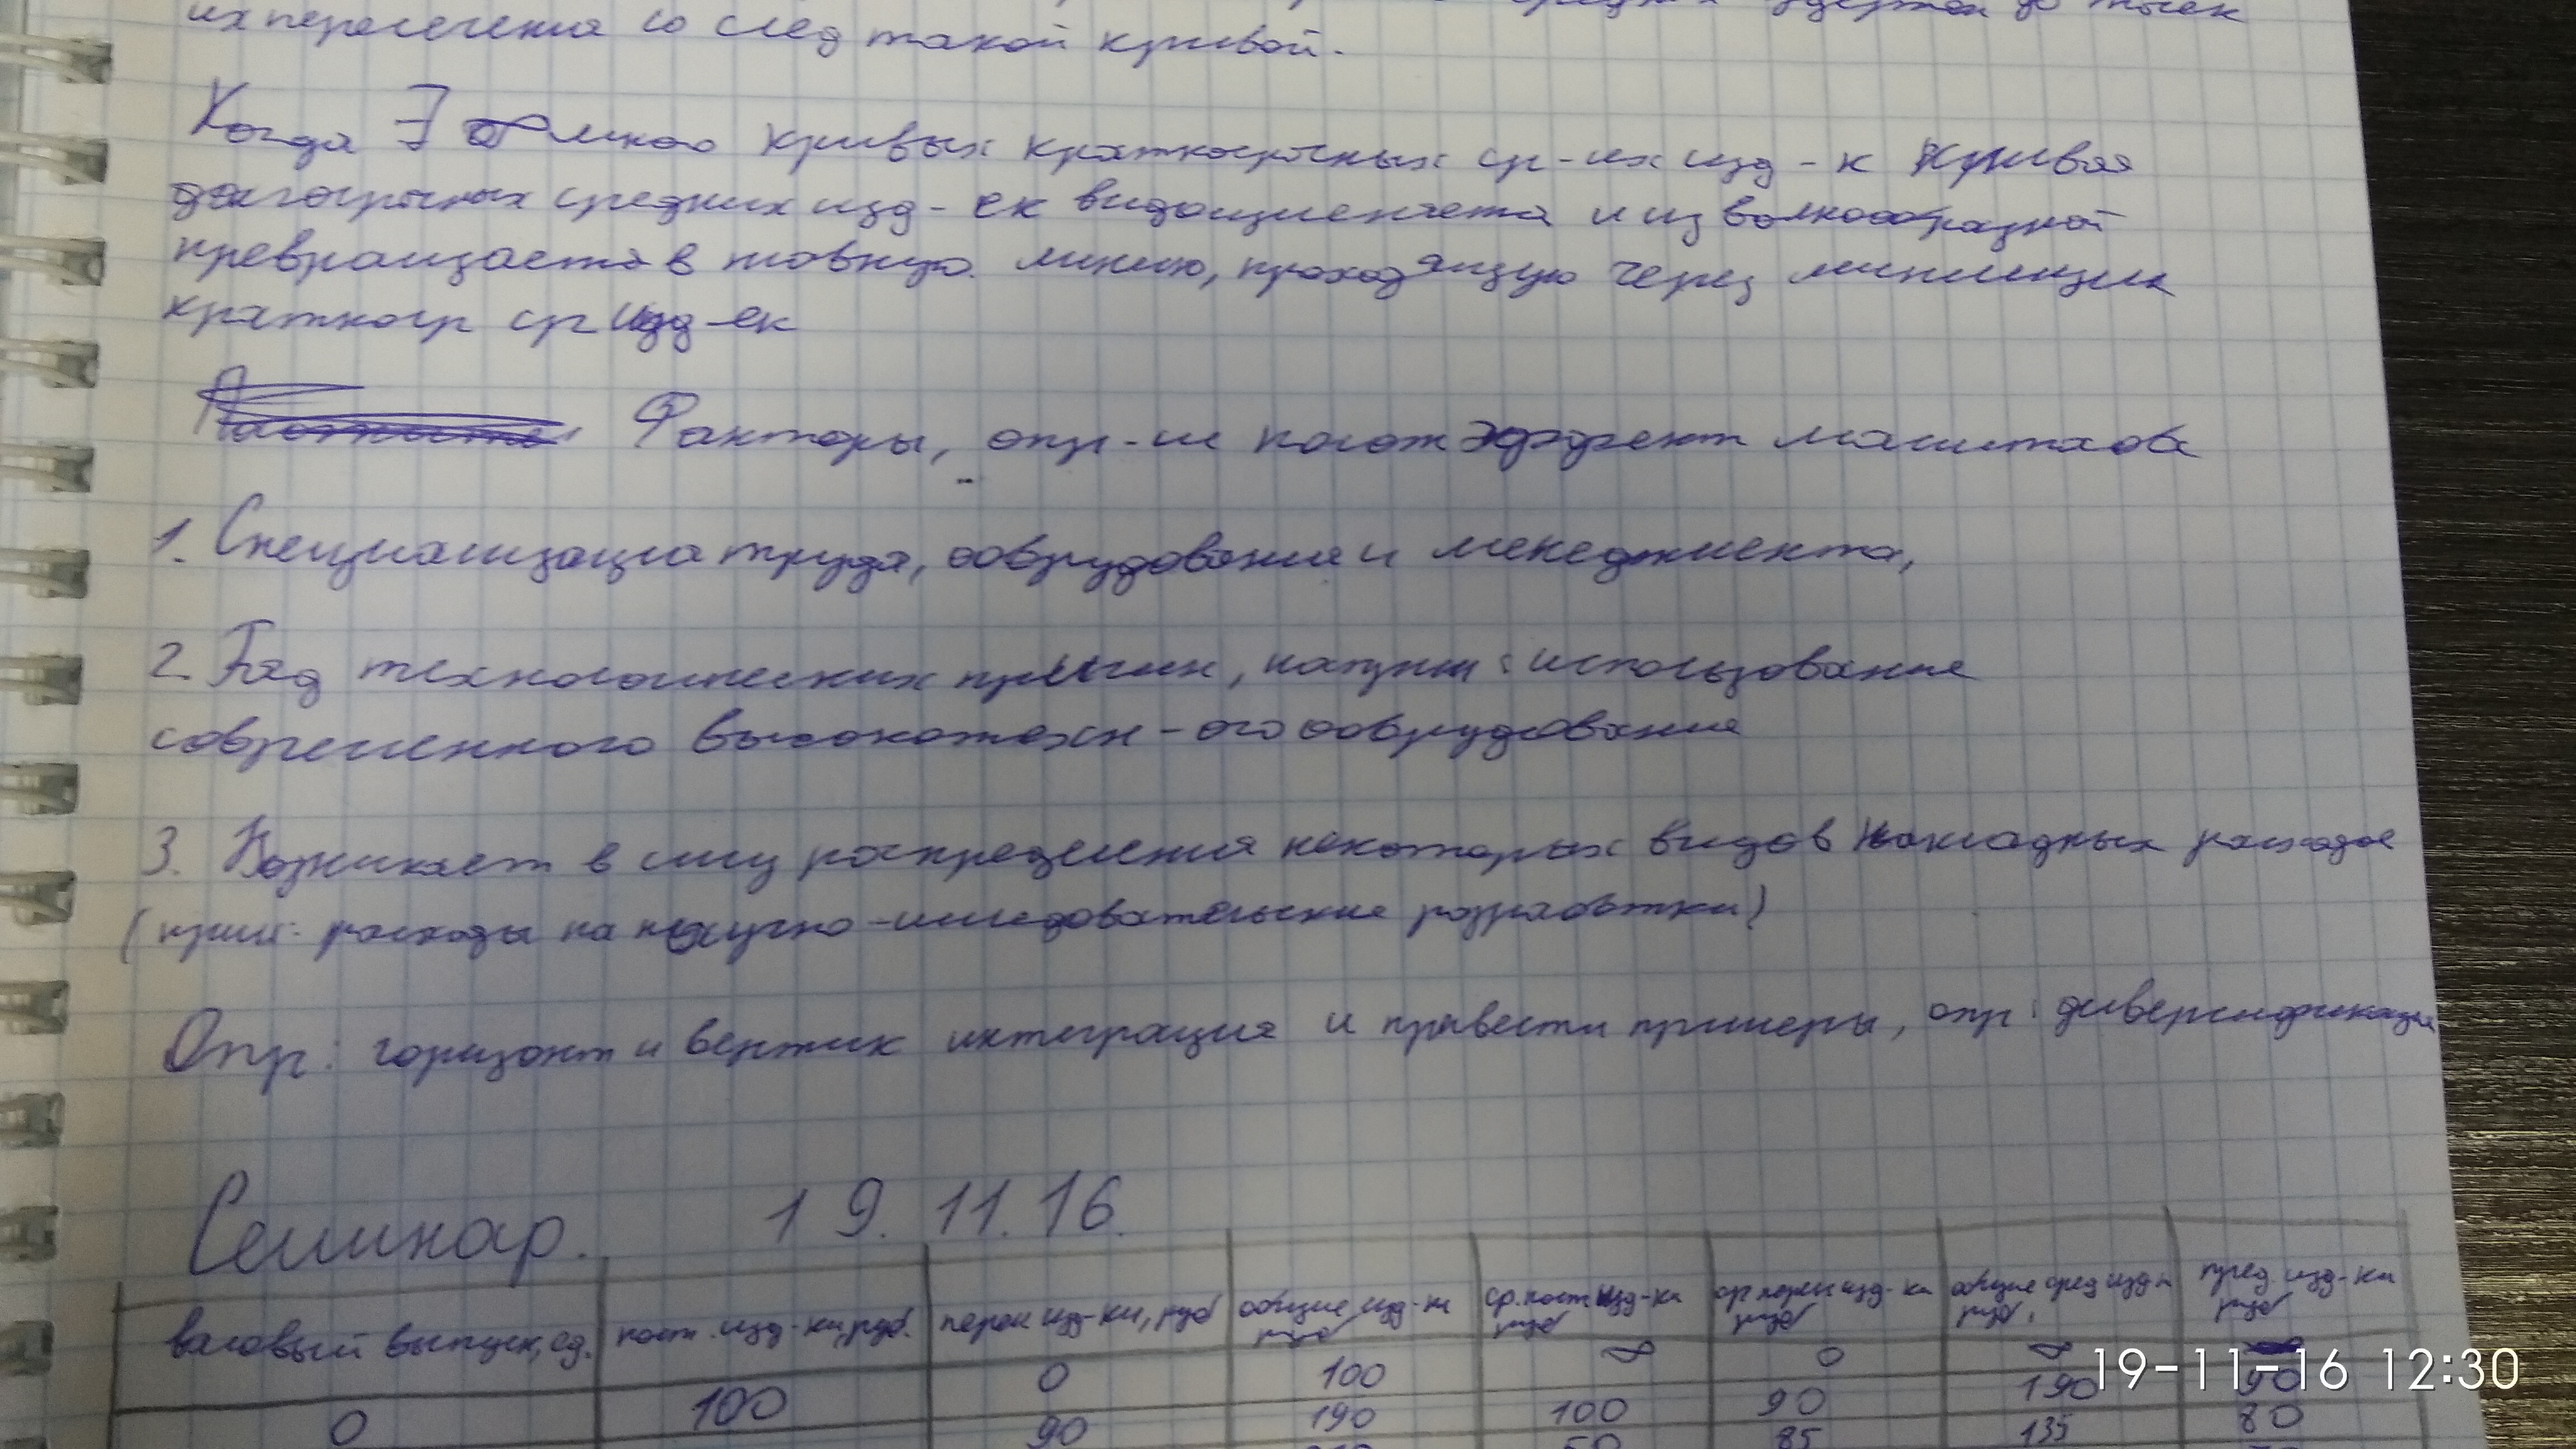 средних издержек до точек
их пересечения со след такой кривой.
Когда ∃ много кривых краткосрочных ср-их изд-к кривая
долгосрочных средних изд-ек видоизменяется и из волнообразной
превращается в плавную линию, проходящую через минимизум
краткоср ср изд-ек
Факторы, опр-ие полож эффект масштаба
1. Специализация труда, оборудования и менеджмента,
2. Ряд технологических причин, наприм: использование
современного высокотехн-ого оборудования
3. Возникает в силу распределения некоторых видов накладных расходов
(прим: расходы на научно-исследовательские разработки)
Опр: горизонт и вертик интеграция и привести примеры, опр: диверсификация
Семинар. 19.11.16.
валовый выпуск, ед. пост. изд-ки, руб. перем изд-ки, руб общие изд-ки руб ср. пост изд-ки руб ср перем изд-ки руб общие сред изд-к руб. пред. изд-ки руб
0 100 0 100 ∞ 0 ∞
90 190 100 90 190 90
50 85 135 80
19-11-16 12:30